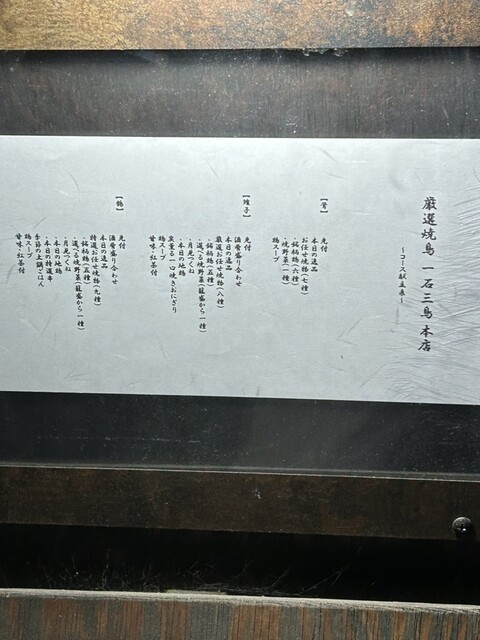 厳選焼鳥 一石三鳥 本店
～コース献立表～
先付
本日の逸品
お任せ焼物(七種)
・銘柄鶏(六種)
・焼野菜(一種)
鶏スープ
【雉子】
先付
酒肴盛り合わせ
本日の逸品
厳選お任せ焼物(八種)
・銘柄鶏(五種)
・選べる焼野菜(籠盛から一種)
・月見つくね
・本日の地鶏
炭薫る一口焼きおにぎり
鶏スープ
甘味・紅茶付
【鶴】
先付
酒肴盛り合わせ
本日の逸品
特選お任せ焼物(九種)
・銘柄鶏(五種)
・選べる焼野菜(籠盛から一種)
・月見つくね
・本日の地鶏
・本日の特選串
季節の土鍋ごはん
鶏スープ
甘味・紅茶付